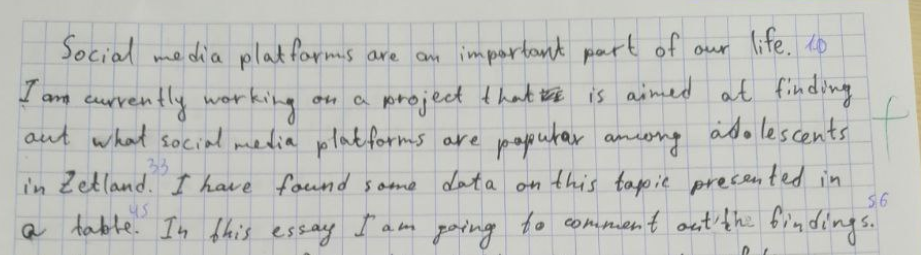 Social media platforms are an important part of our life. 10
I am currently working on a project that is aimed at finding
out what social media platforms are popular among adolescents +
in Zetland. 33 I have found some data on this topic presented in
a table. 45 In this essay I am going to comment out the findings. 56